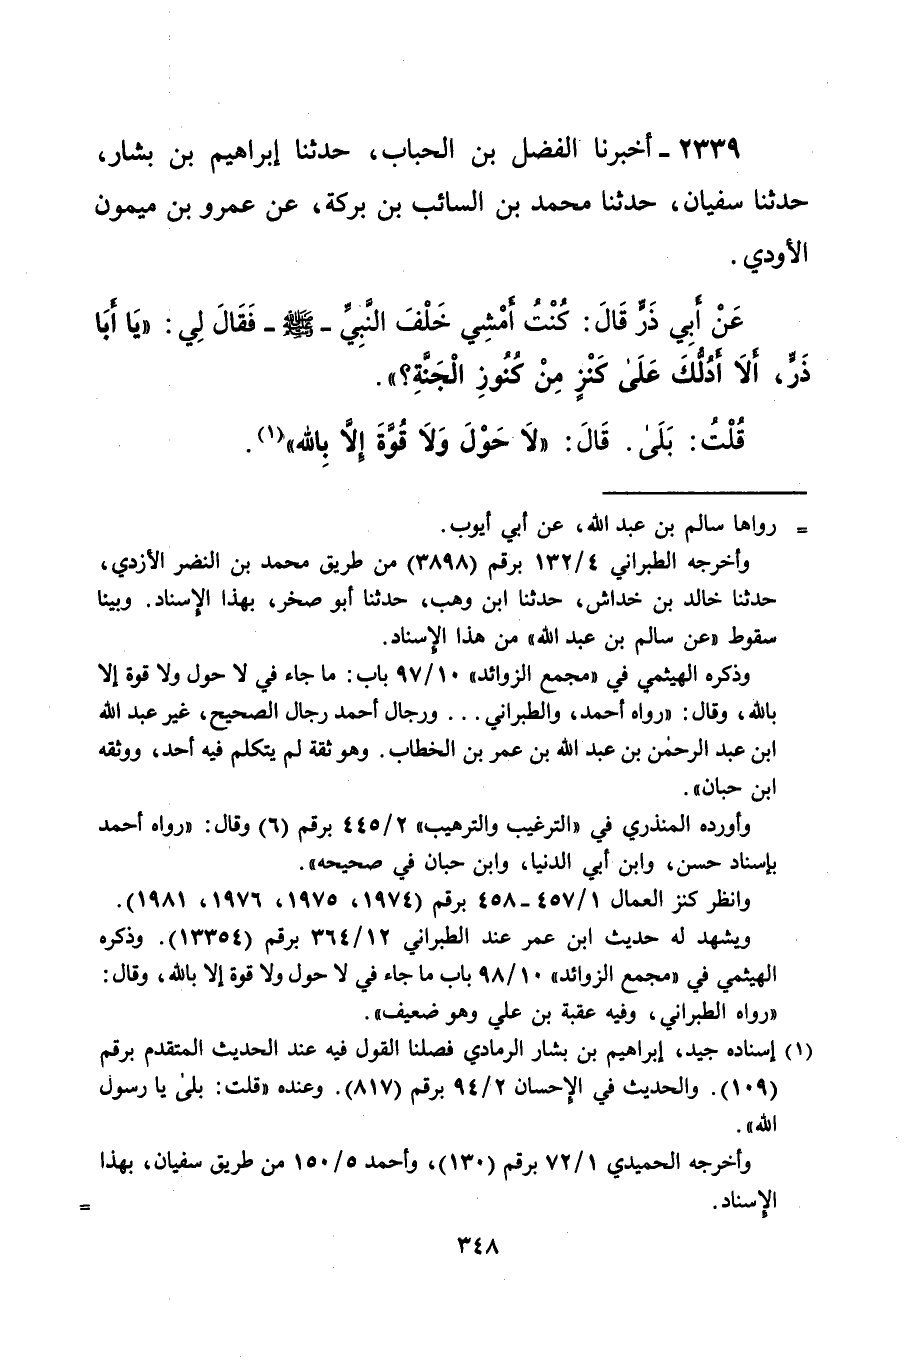 ٢٣٣٩ ـ أخبرنا الفضل بن الحباب، حدثنا إبراهيم بن بشار،
حدثنا سفيان، حدثنا محمد بن السائب بن بركة، عن عمرو بن ميمون
الأودي.
عَنْ أَبِي ذَرٍّ قَالَ: كُنْتُ أَمْشِي خَلْفَ النَّبِيِّ ـ ﷺ ـ فَقَالَ لِي: «يَا أَبَا
ذَرٍّ، أَلَا أَدُلُّكَ عَلَىٰ كَنْزٍ مِنْ كُنُوزِ الْجَنَّةِ؟».
قُلْتُ: بَلَىٰ. قَالَ: «لَا حَوْلَ وَلَا قُوَّةَ إِلَّا بِالله»(١).
= رواها سالم بن عبد الله، عن أبي أيوب.
وأخرجه الطبراني ١٣٢/٤ برقم (٣٨٩٨) من طريق محمد بن النضر الأزدي،
حدثنا خالد بن خداش، حدثنا ابن وهب، حدثنا أبو صخر، بهذا الإسناد. وبينا
سقوط «عن سالم بن عبد الله» من هذا الإسناد.
وذكره الهيثمي في «مجمع الزوائد» ٩٧/١٠ باب: ما جاء في لا حول ولا قوة إلا
بالله، وقال: «رواه أحمد، والطبراني... ورجال أحمد رجال الصحيح، غير عبد الله
ابن عبد الرحمٰن بن عبد الله بن عمر بن الخطاب. وهو ثقة لم يتكلم فيه أحد، ووثقه
ابن حبان».
وأورده المنذري في «الترغيب والترهيب» ٤٤٥/٢ برقم (٦) وقال: «رواه أحمد
بإسناد حسن، وابن أبي الدنيا، وابن حبان في صحيحه».
وانظر كنز العمال ٤٥٧/١ ـ ٤٥٨ برقم (١٩٧٤، ١٩٧٥، ١٩٧٦، ١٩٨١).
ويشهد له حديث ابن عمر عند الطبراني ٣٦٤/١٢ برقم (١٣٣٥٤). وذكره
الهيثمي في «مجمع الزوائد» ٩٨/١٠ باب ما جاء في لا حول ولا قوة إلا بالله، وقال:
«رواه الطبراني، وفيه عقبة بن علي وهو ضعيف».
(١) إسناده جيد، إبراهيم بن بشار الرمادي فصلنا القول فيه عند الحديث المتقدم برقم
(١٠٩). والحديث في الإحسان ٩٤/٢ برقم (٨١٧). وعنده «قلت: بلىٰ يا رسول
الله».
وأخرجه الحميدي ٧٢/١ برقم (١٣٠)، وأحمد ١٥٠/٥ من طريق سفيان، بهذا
الإسناد. =
٣٤٨